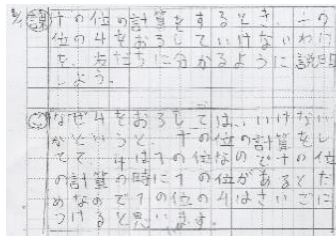 十の位の計算をするとき、一の
位の4をおろしていけないわけ
を、友だちに分かるように説明
しよう。
なぜ4をおろしては、いけない
かというと、十の位の計算をし
てて、4は1の位なので十の位
の計算の時に1の位があるとだ
めなので1の位の4はさいごに
つけると思います。